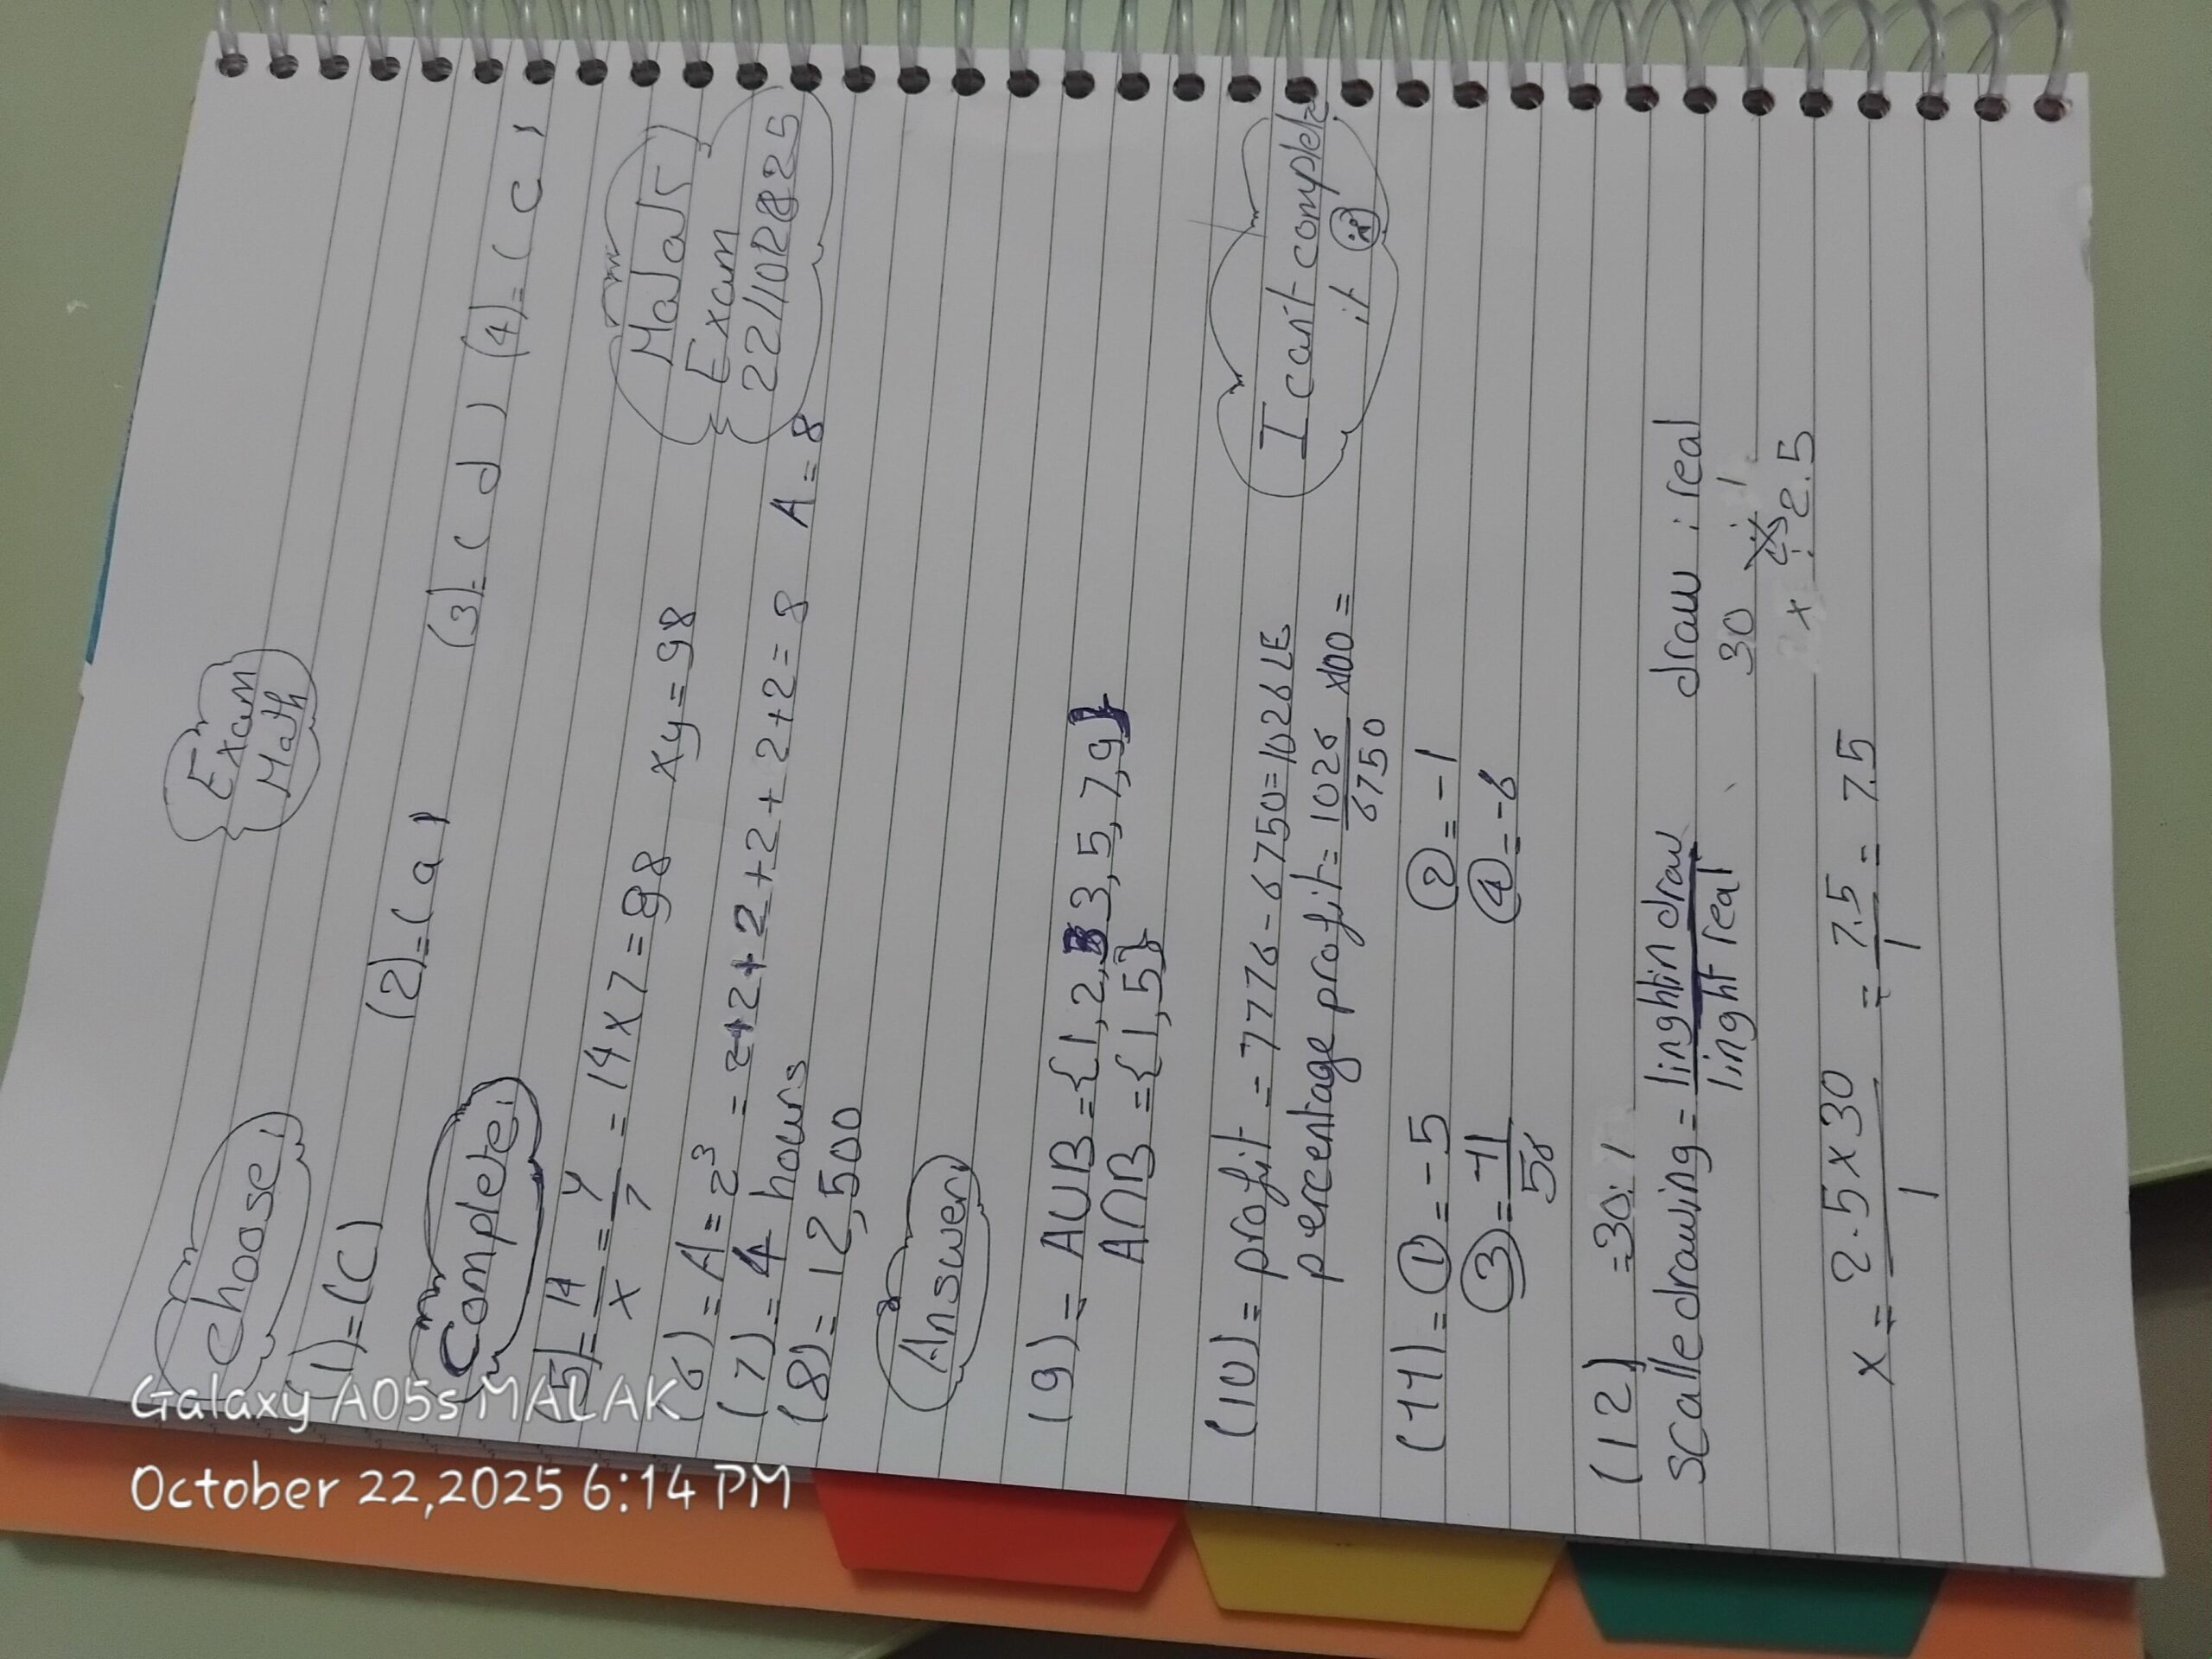 Exam
Math
choose:
(1)=(c)
(2)=(a)
(3)=(d)
(4)=(c)
Complete:
(5)=14/x = y/7 = 14x7=98 xy=98
(6)=A=2³ =2+2+2+2+2+2+2=8 A=8
(7)=4 hours
(8)=12,500
Exam
Answer:
(9)= AUB={1,2,3,5,7,9}
A∩B={1,5}
(10)= profit=7776-6750=1026LE
percentage profit=1026/6750 x100=
I can't complete
it
(11)=①=-5 ②=-1
③=-11/58 ④=-6
(12) =30:1
scalle drawing= linghtin draw draw : real
linght real 30 : 1
x : 2.5
x = 2.5x30/1 = 7.5/1 = 7.5
Galaxy A05s MALAK
October 22,2025 6:14 PM